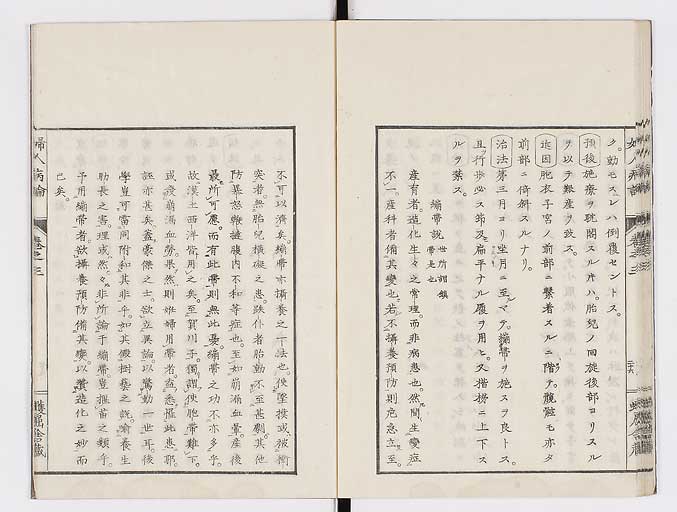 ク。動モスレハ倒覆セントス。
預後 施療ヲ耽閣スル片ハ。胎兒ノ回旋後部ヨリスル
ヲ以テ難産ヲ致ス。
近因 胞衣子宮ノ前部ニ繫着スルニ階テ。體軀モ亦タ
前部ニ傾斜スルナリ。
治法 第三月ヨリ坐月ニ至マテ。繃帶ヲ施スヲ良トス。
且ツ行歩必ス節及扁平ナル履ヲ用ヒ。又楷梯ニ上下ス
ルヲ禁ス。
繃帶説 世所謂鎮帶是也
産育者。造化生々之常理。而非病患也。然間生變症
不一。産科者備其變也。若不攝養預防則危急立至。
不可以濟矣。繃帶亦攝養之一法也。使墜撲或被衝
突者。無胎兒横礙之患。跌仆者胎動不至甚劇。其他
防暴怒 腹内不和等症也。至如崩漏血暈。産後
最所可懼。而有此帶則無此憂。繃帶之功不亦多乎。
故漢土西洋皆用之矣。至賀川子獨謂。使胞帶難下。
或 崩漏血勞。果然則姙婦用帶者。盡悉罹此患耶。
誣亦甚矣。蓋豪傑之士。欲立異論以驚動一世耳。後
學豈可雷同附和其非乎。如其假樹藝之説。喩養生
助長之害。理或然々。非所論于繃帶。豈推苗之類乎。
予用繃帶者。欲攝養預防備其變。以贊造化之妙而
已矣。
婦人病論
卷之三